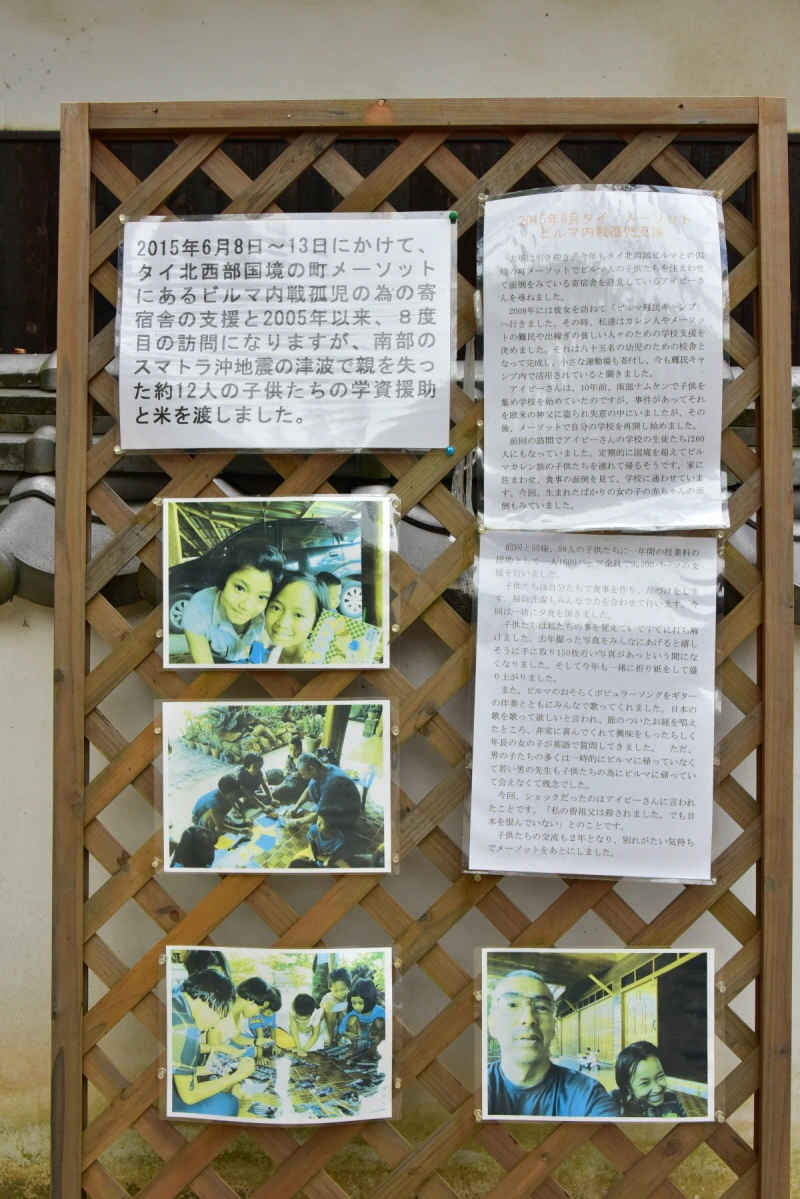 2015年6月8日〜13日にかけて、
タイ北西部国境の町メーソット
にあるビルマ内戦孤児の為の寄
宿舎の支援と2005年以来、８度
目の訪問になりますが、南部の
スマトラ沖地震の津波で親を失っ
た約12人の子供たちの学資援助
と米を渡しました。
2015年6月タイ　メーソット
ビルマ内戦孤児支援
去年に引き続き、今年もタイ北西部ビルマとの国
境の町メーソットでビルマ人の子供たちを住まわせ
て面倒をみている寄宿舎を経営しているアイビーさ
んを尋ねました。
2008年には彼女を訪ねて「ビルマ難民キャンプ」
へ行きました。その時、私達はカレン人やメーソット
の難民や出稼ぎの貧しい人々のための学校支援を
決めました。それは八十五名の幼児のための校舎と
なって完成し、小さな運動場も寄付し、今も難民キャ
ンプ内で活用されていると聞きました。
アイビーさんは、10年前、南部ナムケンで子供を
集め学校を始めていたのですが、事件があってそれ
を欧米の神父に盗られ失意の中にいましたが、その
後、メーソットで自分の学校を再開し始めました。
前回の訪問でアイビーさんの学校の生徒たちは60
人にもなっていました。定期的に国境を超えてビル
マカレン族の子供たちを連れて帰るそうです。家に
住まわせ、食事の面倒を見て、学校に通わせていま
す。今回、生まれたばかりの女の子の赤ちゃんの面
倒もみていました。
前回と同様、58人の子供たちに一年間の授業料の
援助として一人1600バーツ全員で
援を行いました。
子供たちは自分たちで食事を作り、片づけをしま
す。掃除洗濯もみんなで力を合わせて行います。今
回は一緒に夕食を頂きました。
子供たちは私たちの事を覚えていてすぐに打ち解
けました。去年撮った写真をみんなにあげると嬉し
そうに手に取り150枚近い写真があっという間にな
くなりました。そして今年も一緒に折り紙をして盛
り上がりました。
また、ビルマのおそらくポピュラーソングをギター
の伴奏とともにみんなで歌ってくれました。日本の
歌を歌って欲しいと言われ、節のついたお経を唱え
たところ、非常に喜んでくれて興味をもったらしく
年長の女の子が英語で質問してきました。　ただ、
男の子たちの多くは一時的にビルマに帰っていなく
て若い男の先生も子供たちの為にビルマに帰ってい
て会えなくて残念でした。
今回、ショックだったのはアイビーさんに言われ
たことです。「私の曽祖父は殺されました。でも日
本を恨んでいない」とのことです。
子供たちの交流も２年となり、別れがたい気持ち
でメーソットをあとにしました。